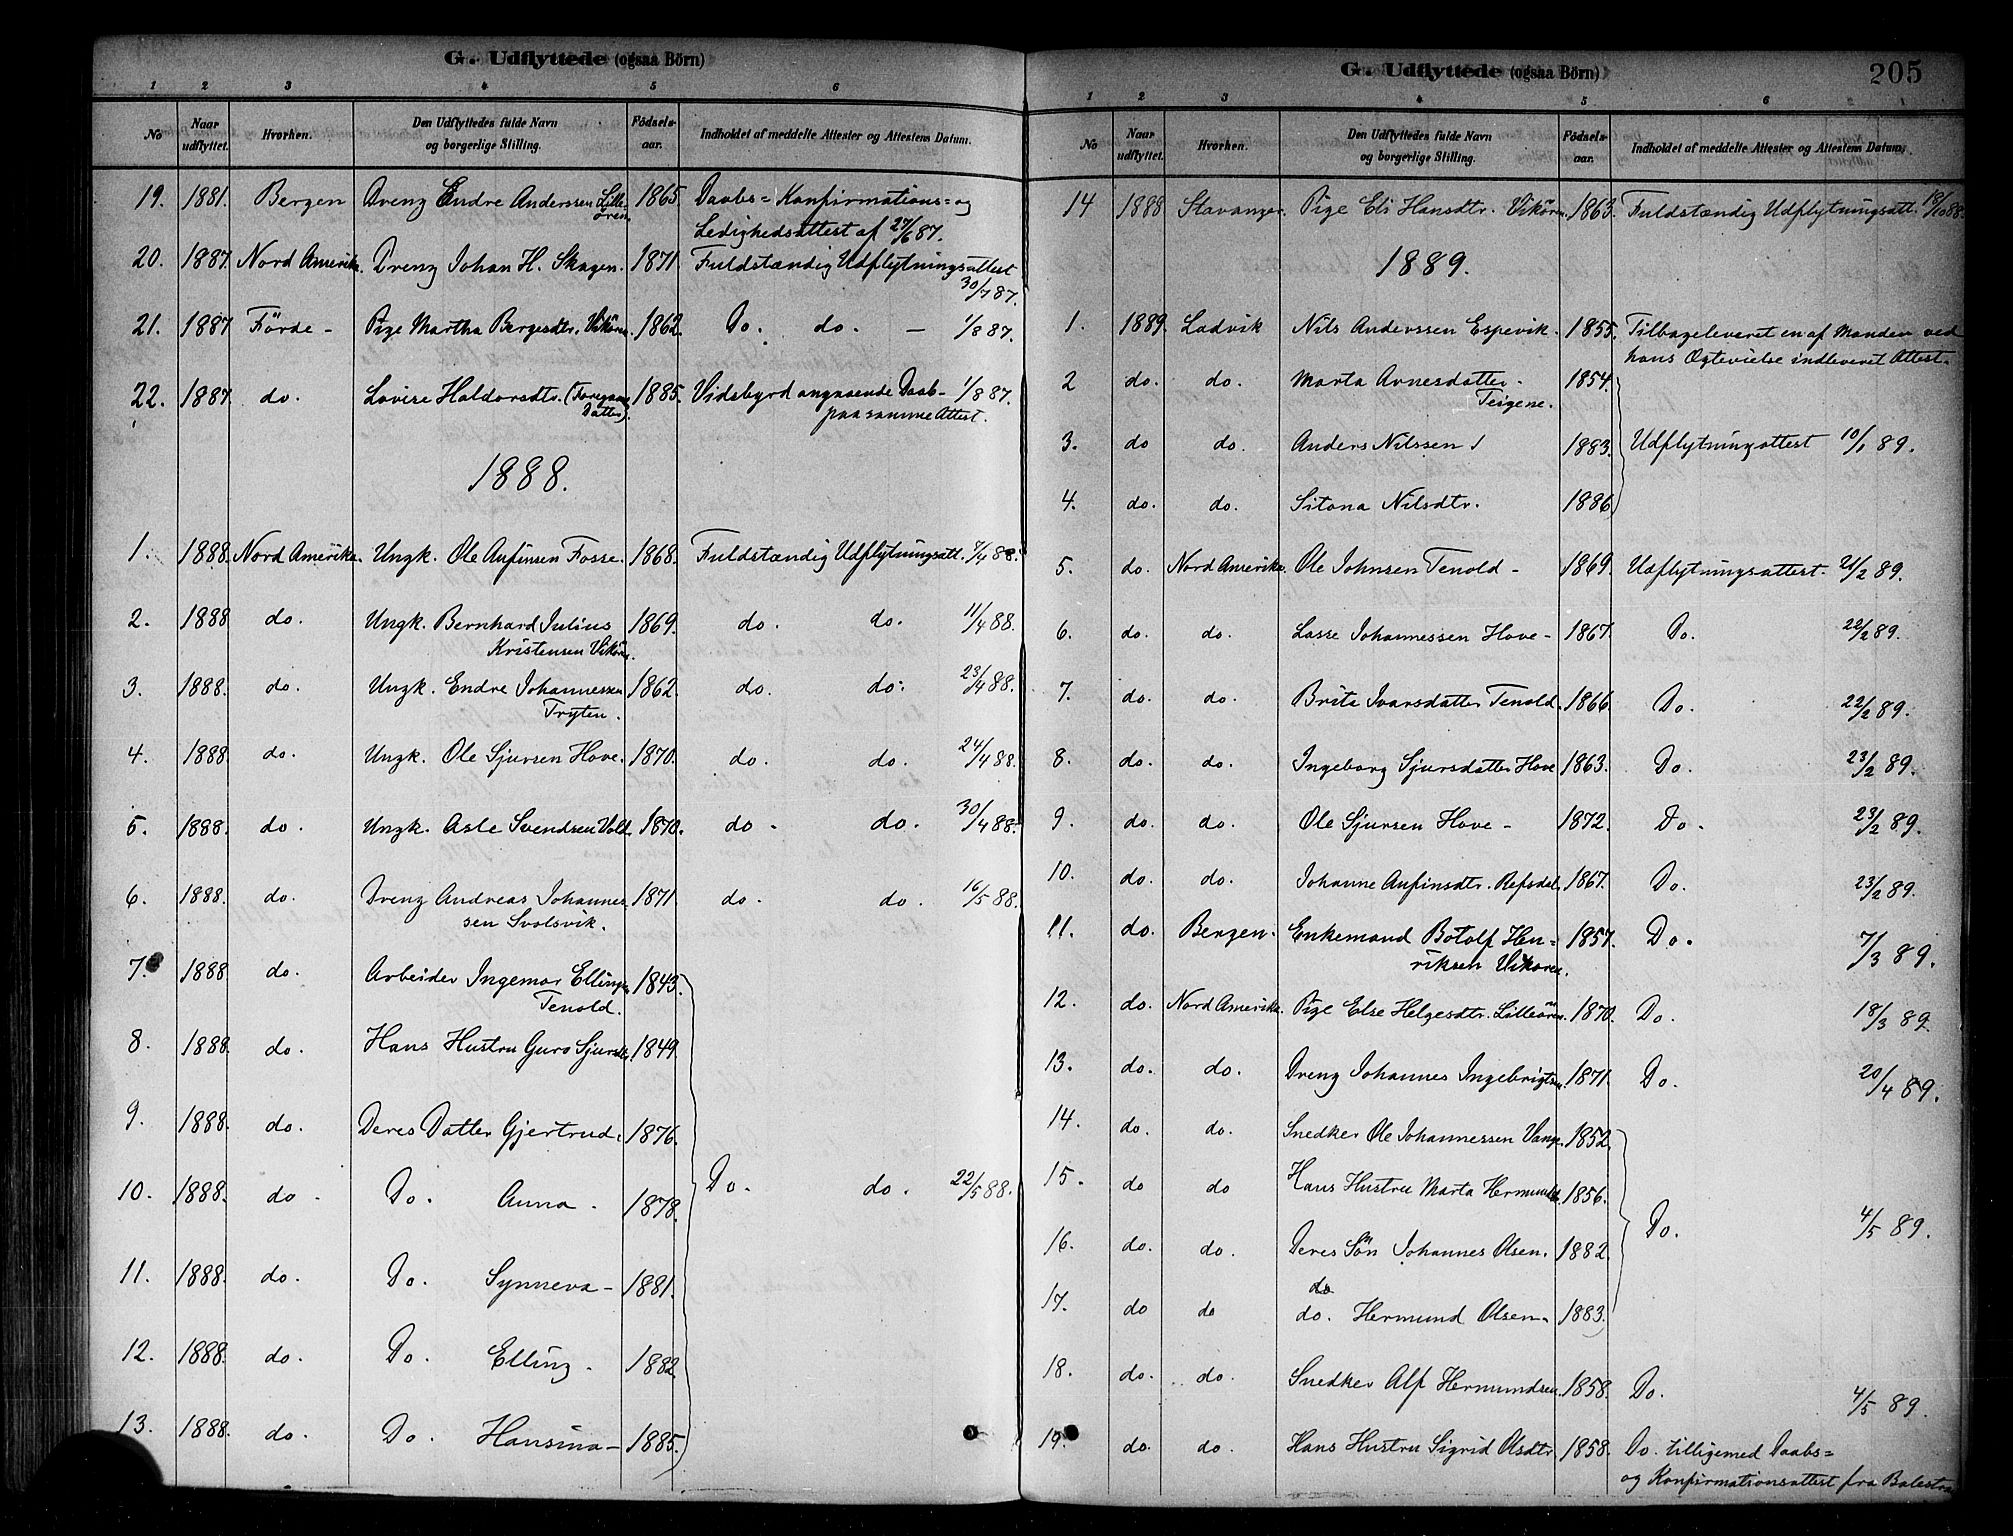 G. Udflyttede (ogsaa Börn)
1 2 3 4 5 6
No Naar udflyttet. Hvorhen. Den Udflyttedes fulde Navn og borgerlige Stilling. Födsels-aar. Indholdet af meddelte Attester og Attestens Datum.
19. 1881. Bergen Dreng Endre Anderssen Lilleören 1865. Daabs= Konfirmations= og
Ledighedsattest af 27/6 87.
20. 1887. Nord Amerika. Dreng Johan H. Skagen. 1871. Fuldstændig Udflytningsattest
30/7 87.
21. 1887 Förde - Pige Martha Bergesdtr. Vikören. 1862. Do. do. - 1/8 87.
22. 1887. do. Lovise Haldorsdtr. (Foregaaen 1885. Vidsbyrd angaaende Daab- 1/8 87.
Datter). paa samme Attest.
1888.
1. 1888. Nord Amerika. Ungk. Ole Anfinsen Fosse. 1868. Fuldstændig Udflytningsatt. 7/4 88.
2. 1888 do. Ungk. Bernhard Julius 1869. do. do. 11/4 88.
Kristensen Vikören.
3. 1888. do. Ungk. Endre Johannessen 1862. do. do. 23/4 88.
Tryten.
4. 1888. do. Ungk. Ole Sjursen Hove. 1870. do. do. 24/4 88.
5. 1888. do. Ungk. Asle Svendsen Vold 1870. do - do. 30/4 88.
6. 1888. do. Dreng Andreas Johannes 1871 do. do. 16/5 88.
sen Svolsvik.
7. 1888. do. Arbeider Ingemar Ellingsen 1843.
Tenold.
8. 1888. do. Hans Hustru Guro Sjursdtr. 1849.
9. 1888. do. Deres Datter Gjertrud. 1876.
10. 1888. do. Do. Anna. 1878. Do. do. 22/5 88.
11. 1888. do. Do. Synneva - 1881.
12. 1888. do. Do. Elling. 1882.
13. 1888. do. Do. Hansina - 1885.
G. Udflyttede (ogsaa Börn) 205
1 2 3 4 5 6
No Naar udflyttet. Hvorhen. Den Udflyttedes fulde Navn og borgerlige Stilling. Födsels-aar. Indholdet af meddelte Attester og Attestens Datum.
14 1888 Stavanger. Pige Eli Hansdtr. Vikören. 1863. Fuldstændig Udflytningsatt. 18/10 88.
1889.
1. 1889. Ladvik Nils Anderssen Espevik. 1855. Tilbageleveret en af Manden ved
hans Ægtevielse indleveret Attest.
2 do. do. Marta Arnesdatter 1854.
Teigene.
3. do do. Anders Nilssen 1883. Udflytningattest 10/1 89.
4. do. do. Sitona Nilsdtr. 1886
5. do. Nord Amerika. Ole Johnsen Tenold - 1869. Udflytningsattest. 21/2 89.
6. do. do. Lasse Johannessen Hove - 1867. Do. 22/2 89.
7. do. do. Brita Ivarsdatter Tenold. 1866 Do. 22/2 89.
8. do. do. Ingeborg Sjursdatter Hove 1863. Do. 23/2 89.
9. do. do. Ole Sjursen Hove - 1872. Do. 23/2 89.
10. do. do. Johanne Anfinsdtr. Refsdal. 1867. Do. 23/2 89.
11. do. Bergen. Enkemand Botolf Hen= 1857. Do. 7/3 89.
riksen Vikøren.
12. do. Nord Amerika. Pige Else Helgesdtr. Lilleören. 1870. Do. 18/3 89.
13. do. do. Dreng Johannes Ingebrigtsen. 1871. Do. 20/4 89.
14. do. do. Snedker Ole Johannessen Vange. 1852.
15. do do Hans Hustru Marta Hermundsd. 1856.
16. do. do. Deres Sön Johannes Olsen. 1882 Do. 4/5 89.
do
17. do do do. Hermund Olsen. 1883.
18. do. do. Snedker Alf Hermundsen. 1858. Do. 4/5 89.
19. do. do. Hans Hustru Sigrid Olsdtr. 1858. Do. tilligemed Daabs=
og Konfirmationsattest fra Balestrand